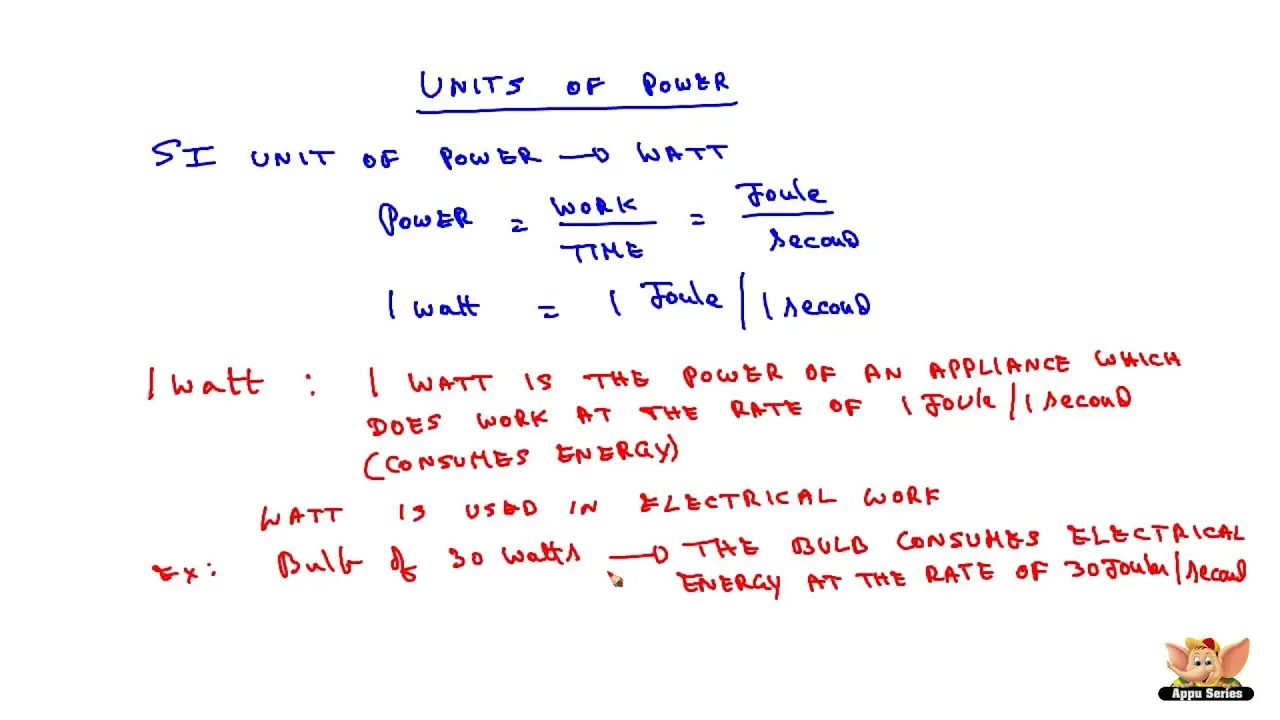 UNITS OF POWER
SI UNIT OF POWER → WATT
POWER = WORK / TIME = Joule / second
1 watt = 1 Joule / 1 second
1 watt : 1 WATT IS THE POWER OF AN APPLIANCE WHICH
DOES WORK AT THE RATE OF 1 Joule / 1 second
(CONSUMES ENERGY)
WATT IS USED IN ELECTRICAL WORK
Ex: Bulb of 30 watts → THE BULB CONSUMES ELECTRICAL
ENERGY AT THE RATE OF 30 Joules / second
Appu Series